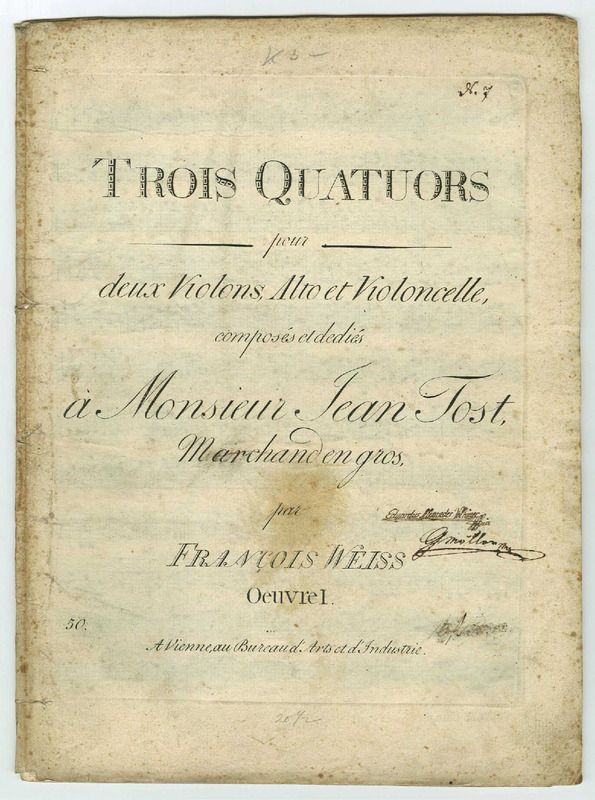 N. 7
TROIS QUATUORS
pour
deux Violons, Alto et Violoncelle,
composés et dediés
à Monsieur Jean Tost,
Marchand en gros,
par
FRANÇOIS WEISS
Oeuvre I.
50.
A Vienne, au Bureau d'Arts et d'Industrie.